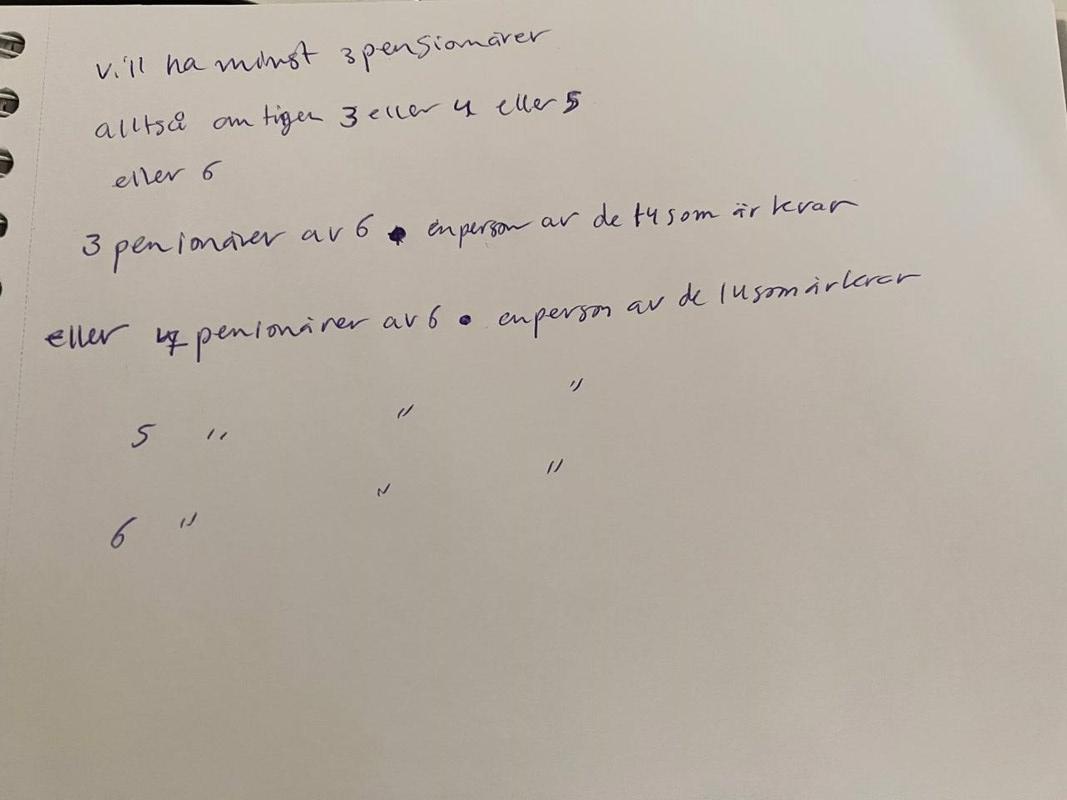 vill ha minst 3 pensionärer
alltså antigen 3 eller 4 eller 5
eller 6
3 penionärer av 6 • en person av de 14 som är kvar
eller 4 penionärer av 6 • en person av de 14 som är kvar
5 " " "
6 " " "